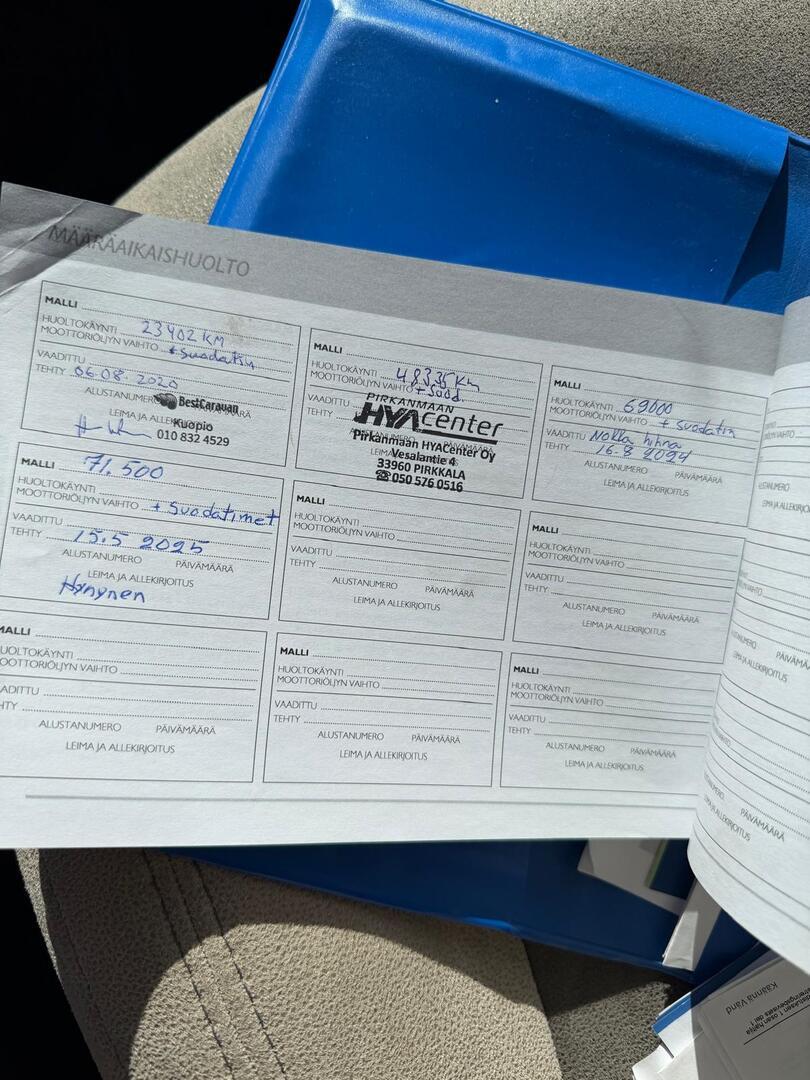 MÄÄRÄAIKAISHUOLTO
MALLI
HUOLTOKÄYNTI 23402 KM
MOOTTORIÖLJYN VAIHTO + suodatin
VAADITTU
TEHTY 06.08. 2020
ALUSTANUMERO
BestCaravan
LEIMA JA ALLEKIRJOITUS
Kuopio
010 832 4529
MALLI
HUOLTOKÄYNTI 48335 Km
MOOTTORIÖLJYN VAIHTO + Suod.
VAADITTU
TEHTY
PIRKANMAAN
HYAcenter
Pirkanmaan HYACenter OY
Vesalantie 4
33960 PIRKKALA
☎ 050 576 0516
MALLI
HUOLTOKÄYNTI 69000
MOOTTORIÖLJYN VAIHTO + suodatin
VAADITTU Nokka hihna
TEHTY 16.8 2024
ALUSTANUMERO PÄIVÄMÄÄRÄ
LEIMA JA ALLEKIRJOITUS
MALLI 71.500
HUOLTOKÄYNTI
MOOTTORIÖLJYN VAIHTO + Suodatimet
VAADITTU
TEHTY 15.5 2025
ALUSTANUMERO PÄIVÄMÄÄRÄ
LEIMA JA ALLEKIRJOITUS
Hynynen
MALLI
HUOLTOKÄYNTI
MOOTTORIÖLJYN VAIHTO
VAADITTU
TEHTY
ALUSTANUMERO PÄIVÄMÄÄRÄ
LEIMA JA ALLEKIRJOITUS
MALLI
HUOLTOKÄYNTI
MOOTTORIÖLJYN VAIHTO
VAADITTU
TEHTY
ALUSTANUMERO PÄIVÄMÄÄRÄ
LEIMA JA ALLEKIRJOITUS
MALLI
UOLTOKÄYNTI
OOTTORIÖLJYN VAIHTO
AADITTU
HTY
ALUSTANUMERO PÄIVÄMÄÄRÄ
LEIMA JA ALLEKIRJOITUS
MALLI
HUOLTOKÄYNTI
MOOTTORIÖLJYN VAIHTO
VAADITTU
TEHTY
ALUSTANUMERO PÄIVÄMÄÄRÄ
LEIMA JA ALLEKIRJOITUS
MALLI
HUOLTOKÄYNTI
MOOTTORIÖLJYN VAIHTO
VAADITTU
TEHTY
ALUSTANUMERO PÄIVÄMÄÄRÄ
LEIMA JA ALLEKIRJOITUS
MALLI
HUOLTOKÄYNTI
MOOTTORIÖLJYN
VAADITTU
TEHTY
PÄIVÄMÄÄRÄ
LEIMA JA ALLEKIRJOITUS
Käännä Vänd